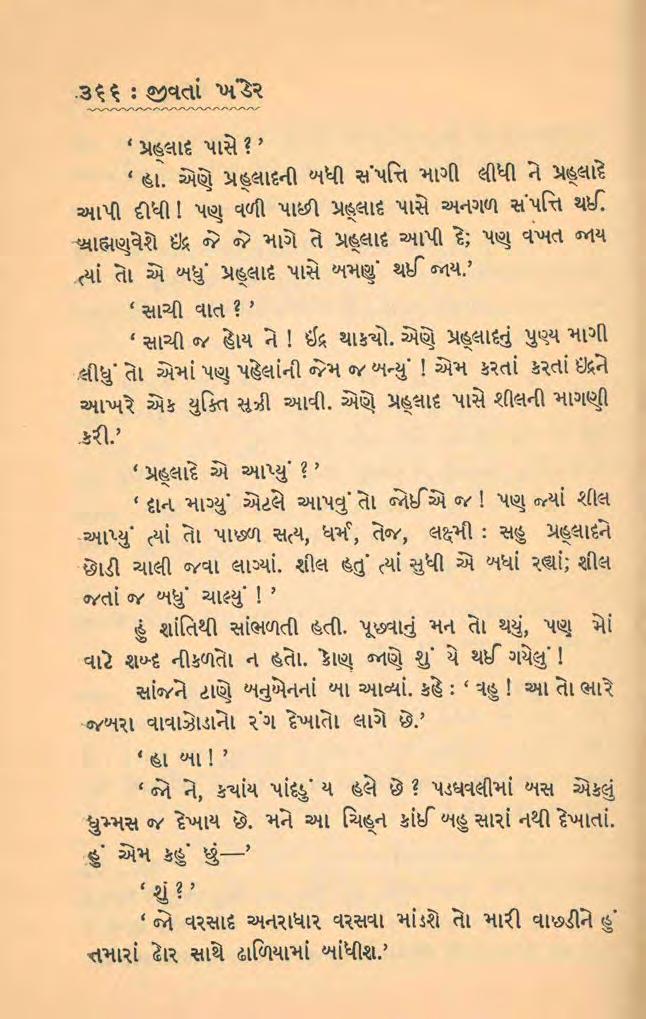 ૩૬૬ : જીવતાં ખંડેર
‘ પ્રહ્‌લાદ પાસે ? ’
‘ હા. એણે પ્રહ્‌લાદની બધી સંપત્તિ માગી લીધી ને પ્રહ્‌લાદે
આપી દીધી! પણ વળી પાછી પ્રહ્‌લાદ પાસે અનગળ સંપત્તિ થઈ.
બ્રાહ્મણવેશે ઇંદ્ર જે જે માગે તે પ્રહ્‌લાદ આપી દે; પણ વખત જાય
ત્યાં તો એ બધું પ્રહ્‌લાદ પાસે બમણું થઈ જાય.’
‘ સાચી વાત ? ’
‘ સાચી જ હોય ને ! ઇંદ્ર થાકયો. એણે પ્રહ્‌લાદનું પુણ્ય માગી
લીધું તો એમાં પણ પહેલાંની જેમ જ બન્યું ! એમ કરતાં કરતાં ઇંદ્રને
આખરે એક યુક્તિ સૂઝી આવી. એણે પ્રહ્‌લાદ પાસે શીલની માગણી
કરી.’
‘ પ્રહ્‌લાદે એ આપ્યું ? ’
‘ દાન માગ્યું એટલે આપવું તો જોઈએ જ ! પણ જ્યાં શીલ
આપ્યું ત્યાં તો પાછળ સત્ય, ધર્મ, તેજ, લક્ષ્મી : સહુ પ્રહ્‌લાદને
છોડી ચાલી જવા લાગ્યાં. શીલ હતું ત્યાં સુધી એ બધાં રહ્યાં; શીલ
જતાં જ બધું ચાલ્યું ! ’
હું શાંતિથી સાંભળતી હતી. પૂછવાનું મન તો થયું, પણ મોં
વાટે શબ્દ નીકળતો ન હતો. કોણ જાણે શું યે થઈ ગયેલું !
સાંજને ટાણે બનુબેનનાં બા આવ્યાં. કહે : ‘ વહુ ! આ તો ભારે
જબરા વાવાઝોડાનો રંગ દેખાતો લાગે છે.’
‘ હા બા ! ’
‘ જો ને, કયાંય પાંદડું ય હલે છે ? પડધવલીમાં બસ એકલું
ધુમ્મસ જ દેખાય છે. મને આ ચિહ્‌ન કાંઈ બહુ સારાં નથી દેખાતાં.
હું એમ કહું છું—’
‘ શું ? ’
‘ જો વરસાદ અનરાધાર વરસવા માંડશે તો મારી વાછડીને હું
તમારાં ઢોર સાથે ઢાળિયામાં બાંધીશ.’